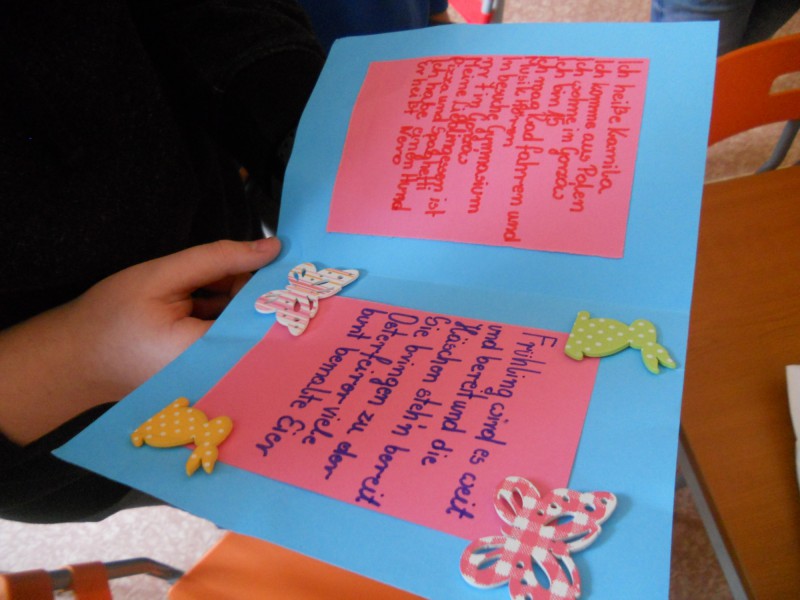 Ich heiße Kamila
Ich komme aus Polen
Ich wohne in Gorzów
Ich bin 15
Ich mag Rad fahren und
Musik hören
besuche Gymnasium
nr 7 in Gorzów
Meine Lieblingsessen ist
Pizza und Spaghetti
Ich habe einen Hund
er heißt
Frühling wird es weit
und bereit und die
Häschen steh'n bereit
Sie bringen zu der
viele
bunt bemalte Eier